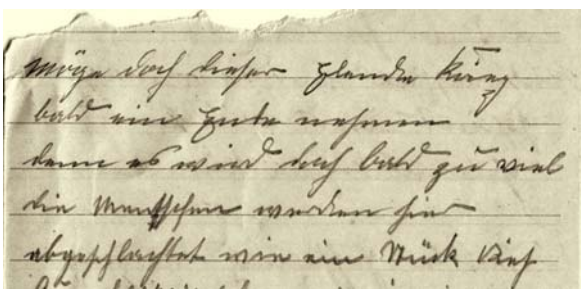 möge doch dieser Elende Krieg
bald ein Ende nehmen
denn es wird doch bald zu viel
die Menschen werden hier
abgeschlachtet wie ein Stück Vieh